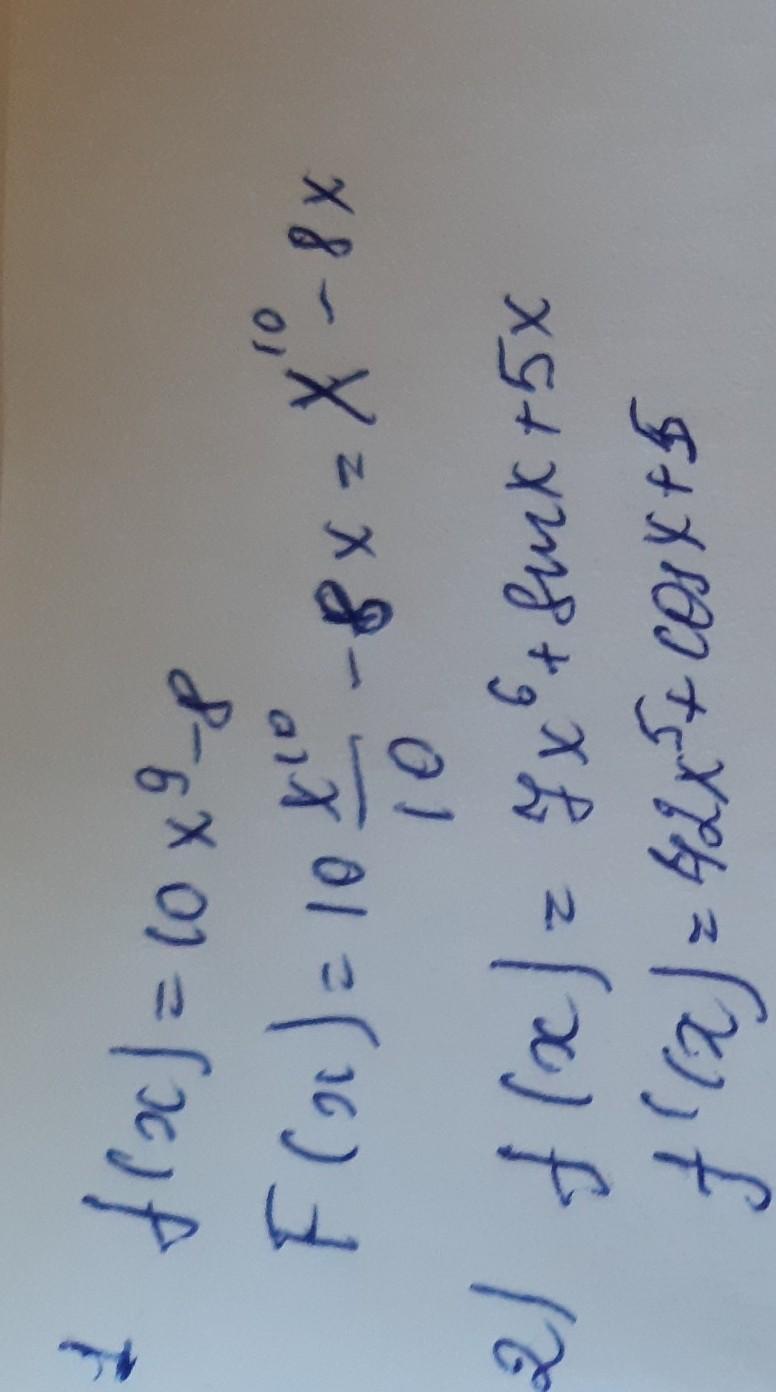 1 f(x) = 10x⁹ - 8
F(x) = 10 x¹⁰/10 - 8x = x¹⁰ - 8x
2) f(x) = 7x⁶ + sinx + 5x
f'(x) = 42x⁵ + cosx + 5